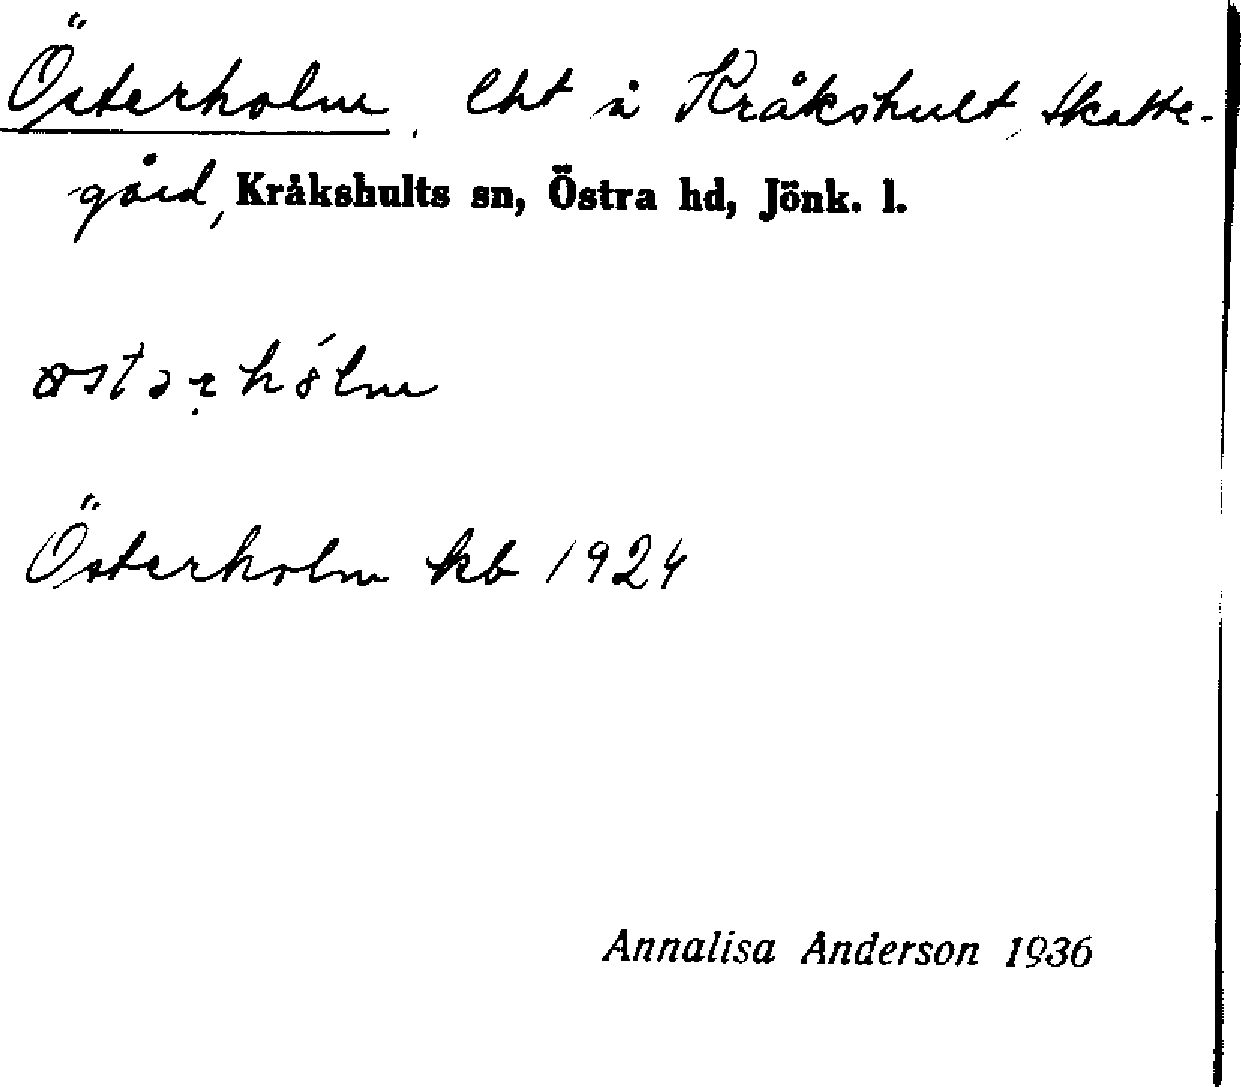 Österholm, lht å Kråkshult, Skatte-
gård, Kråkshults sn, Östra hd, Jönk. l.
Österholm kb 1924
Annalisa Anderson 1936